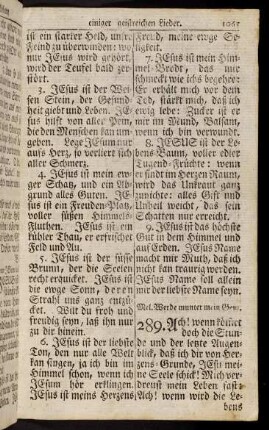 einiger geistreichen Lieder. 1065
ist ein starker Held, unsr
Feind zu überwinden: wo
nur JEsus wird gehört,
wird der Teufel bald zer-
stört.
3. JEsus ist der Wei-
sen Stein, der Gesund-
heit giebt und Leben. JE-
sus hilft von aller Pein,
die den Menschen kan um-
geben. Lege JEsum nur
ans Herz, so verliert sich
aller Schmerz.
4. JEsus ist mein ewi-
ger Schatz, und ein Ab-
grund alles Guten. JE-
sus ist ein Freuden-Platz,
voller süßen Himmels-
Fluthen. JEsus ist ein
kühler Thau, er erfrischet
Feld und Au.
5. JEsus ist der süsse
Brunn, der die Seelen
recht erquicket. JEsus ist
die ewge Sonn, deren
Strahl uns ganz entzü-
cket. Wilt du froh und
freudig seyn, laß ihn nur
zu dir hinein.
6. JEsus ist der liebste
Ton, den mir alle Welt
kan singen, ja ich bin im
Himmel schon, wenn ich
JEsum hör erklingen.
JEsus ist meins Herzens
Freud, meine ewge Se-
ligkeit.
7. JEsus ist mein Him-
mel-Brodt, das mir
schmeckt wie ichs begehre:
Er erhält mich vor dem
Tod, stärkt mich, daß ich
ewig lebe: Zucker ist er
mir im Mund, Balsam,
wenn ich bin verwundt.
8. JESUS ist der Le-
bens Baum, voller edler
Tugend-Früchte: wenn
er findt im Herzen Raum,
wird das Unkraut ganz
zunichte: alles Gift und
Unheil weicht, das sein
Schatten nur erreicht.
9. JEsus ist das höchste
Gut in dem Himmel und
auf Erden. JEsus Name
macht mir Muth, daß ich
nicht kan traurig werden.
JEsus Name soll allein
mir der liebste Name seyn.
Mel. Werde munter mein Gem.
289. Ach! wenn kömmet
doch die Stun-
de und der letzte Augen-
blick, daß ich dir von Her-
zens-Grunde, JEsu mei-
ne Seele schick! Mich ver-
dreust mein Leben fast:
Ach! wenn wird die Le-
bens